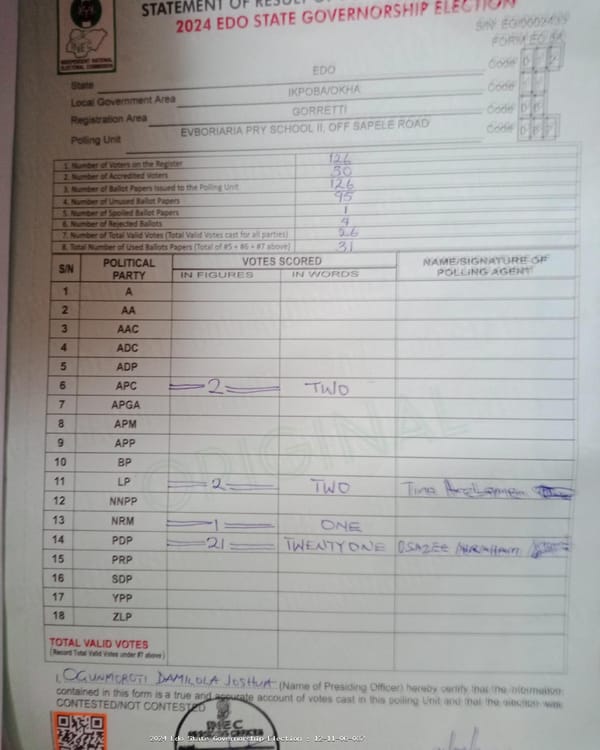 STATEMENT OF RESULT OF
2024 EDO STATE GOVERNORSHIP ELECTION
INEC
INDEPENDENT NATIONAL ELECTORAL COMMISSION
FORM EC 8A
State EDO Code
Local Government Area IKPOBA/OKHA Code
Registration Area GORRETTI Code
Polling Unit EVBORIARIA PRY SCHOOL II, OFF SAPELE ROAD Code
1. Number of Voters on the Register 126
2. Number of Accredited Voters 30
3. Number of Ballot Papers Issued to the Polling Unit 126
4. Number of Unused Ballot Papers 95
5. Number of Spoiled Ballot Papers 1
6. Number of Rejected Ballots 4
7. Number of Total Valid Votes (Total Valid Votes cast for all parties) 26
8. Total Number of Used Ballots Papers (Total of #5 + #6 + #7 above) 31
S/N POLITICAL PARTY VOTES SCORED NAME/SIGNATURE OF POLLING AGENT
IN FIGURES IN WORDS
1 A
2 AA
3 AAC
4 ADC
5 ADP
6 APC 2 TWO
7 APGA
8 APM
9 APP
10 BP
11 LP 2 TWO
12 NNPP
13 NRM 1 ONE
14 PDP 21 TWENTYONE OSAZEE
15 PRP
16 SDP
17 YPP
18 ZLP
ORIGINAL
TOTAL VALID VOTES
(Record Total Valid Votes under #7 above)
I, OGUNMOROTI DAMILOLA JOSHUA (Name of Presiding Officer) hereby certify that the information
contained in this form is a true and accurate account of votes cast in this polling Unit and that the election was
CONTESTED/NOT CONTESTED
INEC
2024 Edo State Governorship Election